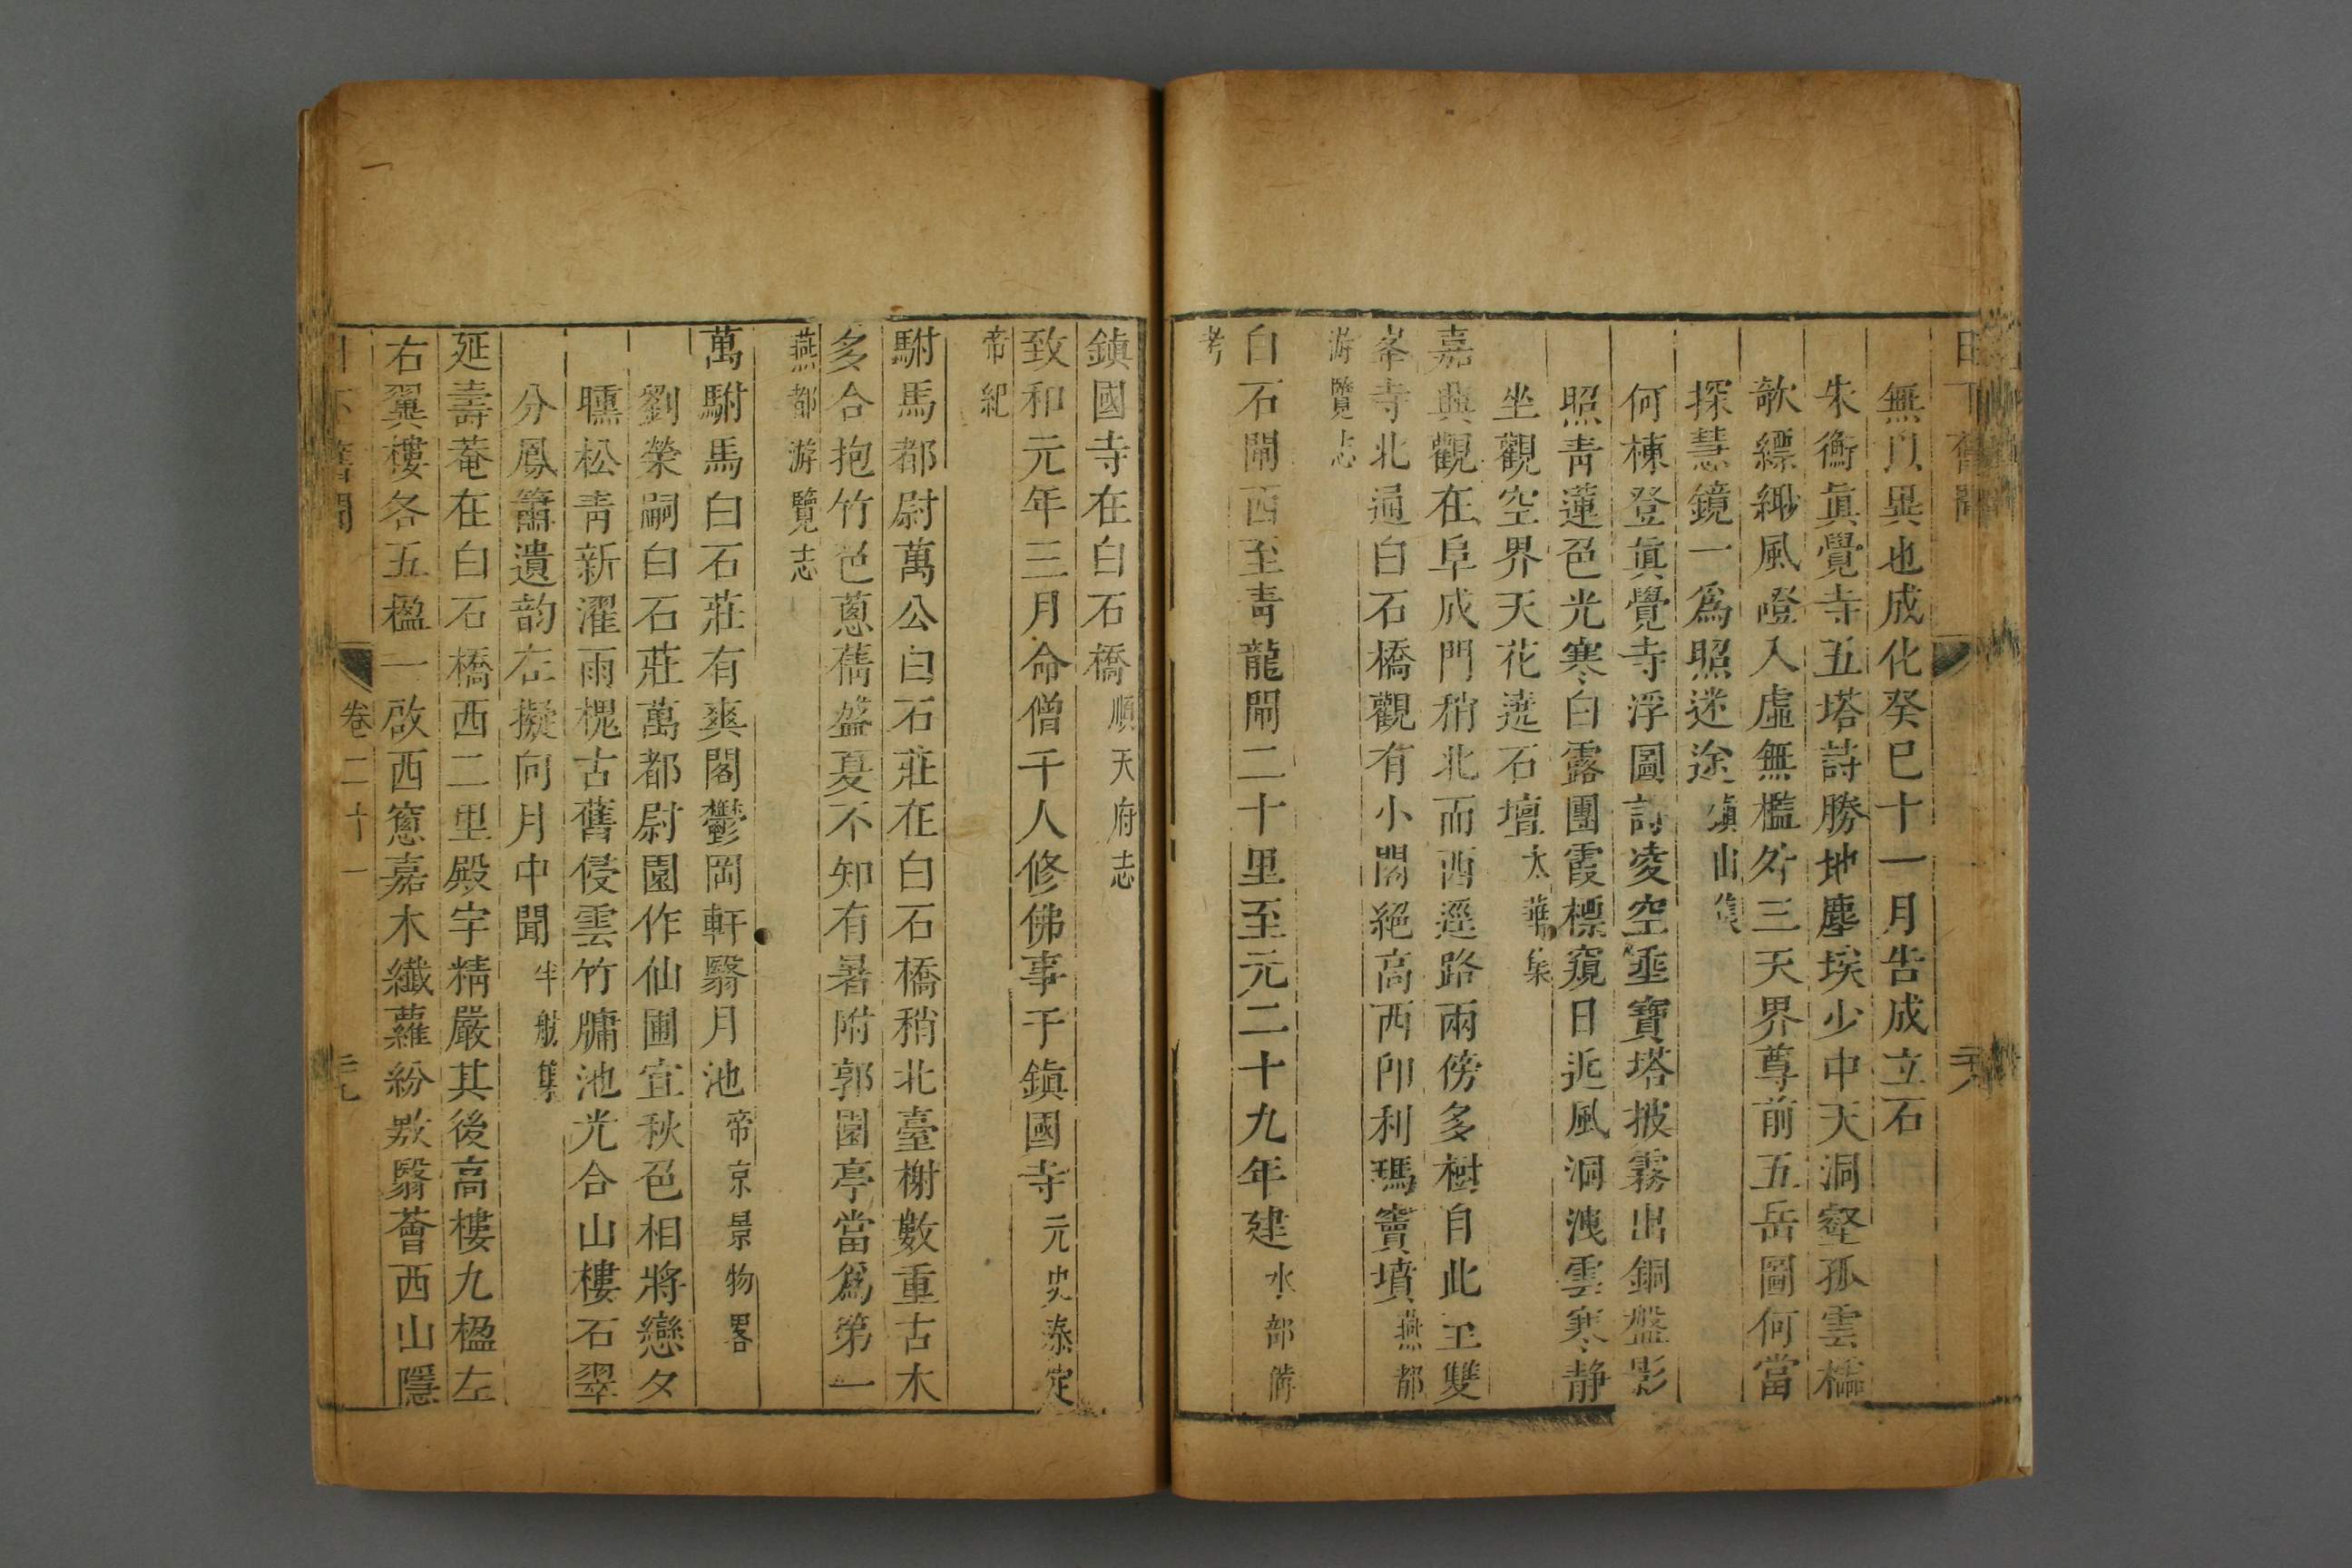 日下舊聞
無以異也成化癸巳十一月告成立石
朱衡眞覺寺五塔詩勝地塵埃少中天洞壑孤雲檽
欹縹緲風磴入虛無檻外三天界尊前五岳圖何當
探慧鏡一爲照迷途鎭山集
何棟登眞覺寺浮圖詩凌空垂寶塔披霧出銅盤影
照靑蓮色光寒白露團霞標窺日近風洞洩雲寒靜
坐觀空界天花遶石壇太華集
嘉興觀在阜成門稍北而西逕路兩傍多樹自此至雙
峯寺北過白石橋觀有小閣絕高西卽利瑪竇墳燕都
游覽志
白石閘西至靑龍閘二十里至元二十九年建水部備
考
鎭國寺在白石橋順天府志
致和元年三月命僧千人修佛事于鎭國寺元史泰定
帝紀
駙馬都尉萬公白石莊在白石橋稍北臺榭數重古木
多合抱竹色蔥蒨盛夏不知有暑附郭園亭當爲第一
燕都游覽志
萬駙馬白石莊有爽閣鬱岡軒翳月池帝京景物畧
劉榮嗣白石莊萬都尉園作仙圃宜秋色相將戀夕
曛松靑新濯雨槐古舊侵雲竹牖池光合山樓石翠
分鳳簫遺韵在擬向月中聞半舫集
延壽菴在白石橋西二里殿宇精嚴其後高樓九楹左
右翼樓各五楹一啟西窻嘉木纖蘿紛敷翳薈西山隱
日下舊聞 卷二十一 二九